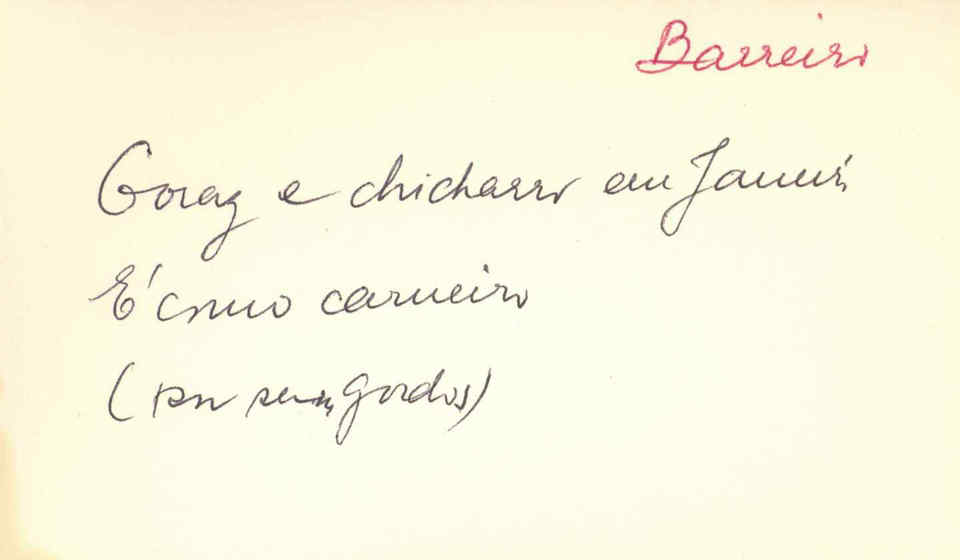 Barreiro
Goraz e chicharro em Janeiro
É como carneiro
(por serem gordos)